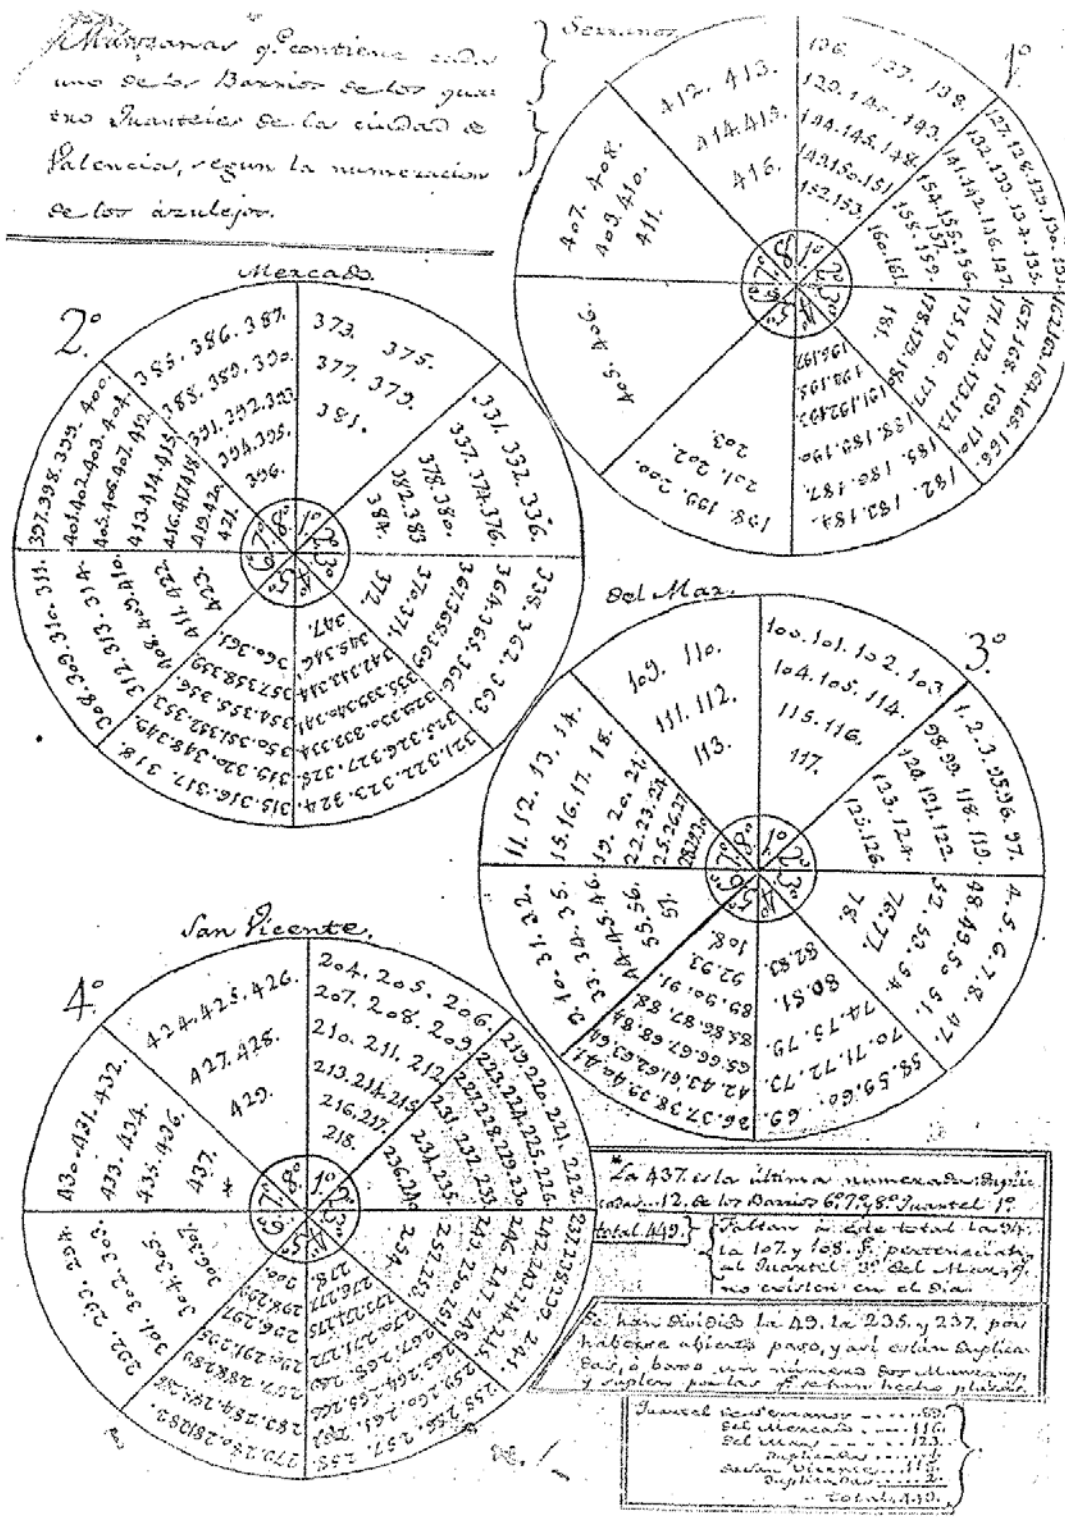 Manzanas q.e contiene cada
uno de los Barrios de los qua
tro Quarteles de la ciudad de
Valencia, segun la numeracion
de los azulejos.
Serranos
1º
136. 137. 138.
139. 140. 143.
144. 145. 148.
149. 150. 151
152. 153.
127. 128. 129. 130. 131.
132. 133. 134. 135.
141. 142. 146. 147.
154. 155. 156.
157.
158. 159.
160. 161.
162. 163. 164. 165. 166.
167. 168. 169. 170.
171. 172. 173. 174.
175. 176. 177.
178. 179. 180
181.
182. 183. 184.
185. 186. 187.
188. 189. 190
191. 192. 193.
194. 195.
196. 197
198. 199. 200.
201. 202.
203.
405. 406.
407. 408.
409. 410.
411.
412. 413.
414. 415.
416.
1º 2º 3º 4º 5º 6º 7º 8º
Mercado
2º
373. 375.
377. 379.
381.
331. 332. 336.
337. 374. 376.
378. 380.
382. 383
384.
338. 362. 363.
364. 365. 366.
367. 368. 369
370. 371.
372.
321. 322. 323. 324.
325. 326. 327. 328.
329. 330. 333. 334.
335. 339. 340. 341.
342. 343. 344.
345. 346.
347.
315. 316. 317. 318.
319. 320. 348. 349.
350. 351. 352. 353.
354. 355. 356.
357. 358. 359.
360. 361.
308. 309. 310. 311.
312. 313. 314.
408. 409. 410.
411. 422.
423.
397. 398. 399. 400.
401. 402. 403. 404.
405. 406. 407. 412.
413. 414. 415.
416. 417. 418.
419. 420.
421.
385. 386. 387.
388. 389. 390.
391. 392. 393
394. 395.
396.
1º 2º 3º 4º 5º 6º 7º 8º
Del Mar.
3º
100. 101. 102. 103.
104. 105. 114.
115. 116.
117.
1. 2. 3. 95. 96. 97.
98. 99. 118. 119.
120. 121. 122.
123. 124.
125. 126.
4. 5. 6. 7. 8. 47.
48. 49. 50. 51.
52. 53. 54.
76. 77.
78.
58. 59. 60. 69.
70. 71. 72. 73.
74. 75. 79.
80. 81.
82. 83.
36. 37. 38. 39. 40. 41.
42. 43. 61. 62. 63. 64
65. 66. 67. 68. 84
85. 86. 87. 88.
89. 90. 91.
92. 93.
108.
9. 10. 31. 32.
33. 34. 35.
44. 45. 46.
55. 56.
57.
11. 12. 13. 14.
15. 16. 17. 18.
19. 20. 21.
22. 23. 24
25. 26. 27
28. 29. 30
109. 110.
111. 112.
113.
1º 2º 3º 4º 5º 6º 7º 8º
San Vicente.
4º
204. 205. 206.
207. 208. 209
210. 211. 212
213. 214. 215
216. 217.
218.
219. 220. 221. 222.
223. 224. 225. 226.
227. 228. 229. 230
231. 232. 233.
234. 235.
236. 240
237. 238. 239. 241.
242. 243. 244. 245.
246. 247. 248.
249. 250. 251.
252. 253.
254.
255. 256. 257. 258.
259. 260. 261. 262
263. 264. 265. 266
267. 268. 269
270. 271. 272
273. 274. 275
276. 277
278.
279. 280. 281. 282.
283. 284. 285. 286
287. 288. 289
290. 291. 295
296. 297.
298. 299.
300.
292. 293. 294.
301. 302. 303.
304. 305
306. 307.
430. 431. 432.
433. 434.
435. 436.
437. *
424. 425. 426.
427. 428.
429.
1º 2º 3º 4º 5º 6º 7º 8º
* La 437. es la última numerada: dupli
cadas 12. de los Barrios 6º 7º y 8º Quartel 1º
total 449.
Faltan á este total la 94.
la 107. y 108. q.e pertenecientes
al Quartel 3º del Mar, q.
no existen en el dia
Se han dividido la 49. la 235. y 237. por
haberse abierto paso, y asi están duplica
das, ó baxo un número dos Manzanas
y suplen por las q.e se han hecho plazas.
Quartel de Serranos 89.
del Mercado 116.
del Mar 123.
Duplicadas 1.
De San Vicente 118.
Duplicadas 2.
Total 449.